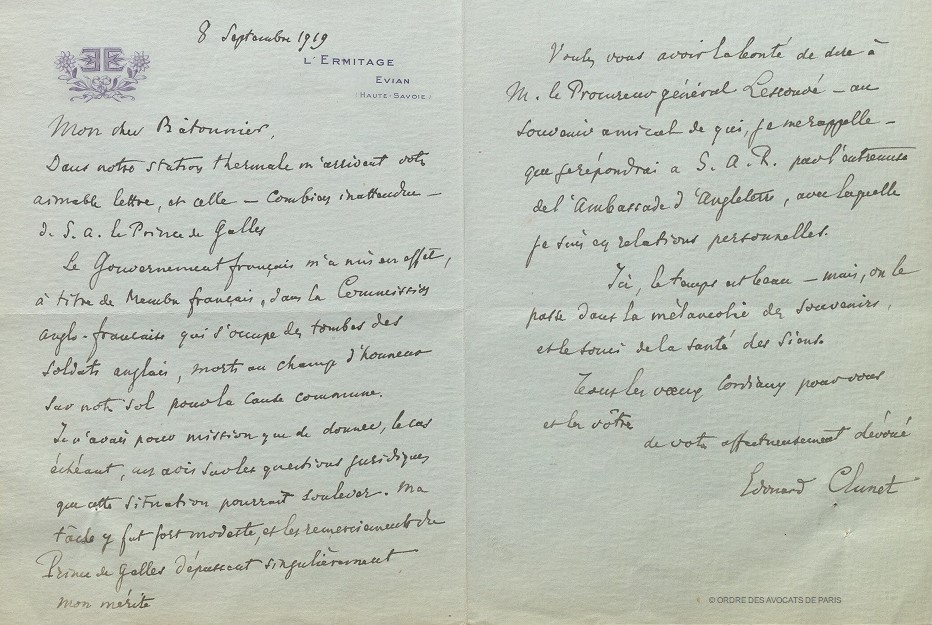 8 Septembre 1919
L'ERMITAGE
EVIAN
(HAUTE-SAVOIE)
Mon cher Bâtonnier,
Dans notre station thermale m'arrivent votre
aimable lettre, et celle – combien inattendue –
de S. A. le Prince de Galles
Le Gouvernement français m'a mis en effet,
à titre de Membre français, dans la Commission
anglo-française qui s'occupe des tombes des
soldats anglais, morts au champ d'honneur
sur notre sol pour la cause commune.
Je n'avais pour mission que de donner, le cas
échéant, un avis sur les questions juridiques
que cette situation pourrait soulever. Ma
tâche y fut fort modeste, et les remerciements du
Prince de Galles dépassent singulièrement
mon mérite
Voulez vous avoir la bonté de dire à
M. le Procureur général Lescouvé – au
souvenir amical de qui, je me rappelle –
que je répondrai à S. A. R. par l'entremise
de l'Ambassade d'Angleterre, avec laquelle
je suis en relations personnelles.
Ici, le temps est beau – mais, on le
passe dans la mélancolie des souvenirs,
et le souci de la santé des siens.
Tous les vœux cordiaux pour vous
et les vôtres
de votre affectueusement dévoué
Edouard Clunet
© ORDRE DES AVOCATS DE PARIS